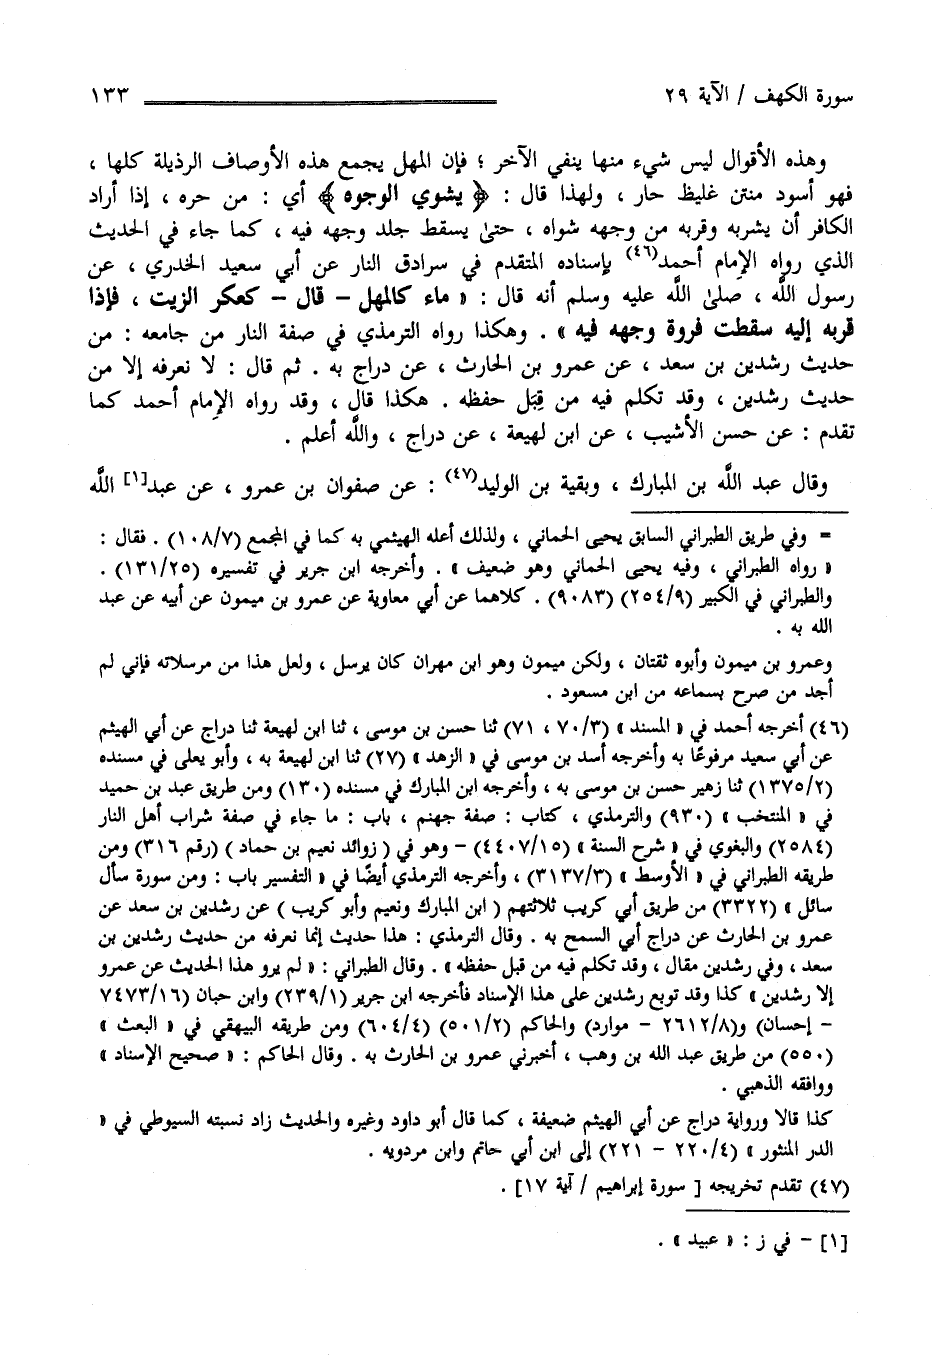 سورة الكهف / الآية ٢٩ ١٣٣
وهذه الأقوال ليس شيء منها ينفي الآخر ؛ فإن المهل يجمع هذه الأوصاف الرذيلة كلها ،
فهو أسود منتن غليظ حار ، ولهذا قال : ﴿ يشوي الوجوه ﴾ أي : من حره ، إذا أراد
الكافر أن يشربه وقربه من وجهه شواه ، حتىٰ يسقط جلد وجهه فيه ، كما جاء في الحديث
الذي رواه الإمام أحمد(٤٦) بإسناده المتقدم في سرادق النار عن أبي سعيد الخدري ، عن
رسول اللَّه ، صلىٰ اللَّه عليه وسلم أنه قال : « ماء كالمهل - قال - كعكر الزيت ، فإذا
قربه إليه سقطت فروة وجهه فيه » . وهكذا رواه الترمذي في صفة النار من جامعه : من
حديث رشدين بن سعد ، عن عمرو بن الحارث ، عن دراج به . ثم قال : لا نعرفه إلا من
حديث رشدين ، وقد تكلم فيه من قِبَل حفظه . هكذا قال ، وقد رواه الإمام أحمد كما
تقدم : عن حسن الأشيب ، عن ابن لهيعة ، عن دراج ، واللَّه أعلم .
وقال عبد اللَّه بن المبارك ، وبقية بن الوليد(٤٧) : عن صفوان بن عمرو ، عن عبد[١] اللَّه
= وفي طريق الطبراني السابق يحيى الحماني ، ولذلك أعله الهيثمي به كما في المجمع (١٠٨/٧) . فقال :
« رواه الطبراني ، وفيه يحيى الحماني وهو ضعيف » . وأخرجه ابن جرير في تفسيره (١٣١/٢٥) .
والطبراني في الكبير (٢٥٤/٩) (٩٠٨٣) . كلاهما عن أبي معاوية عن عمرو بن ميمون عن أبيه عن عبد
الله به .
وعمرو بن ميمون وأبوه ثقتان ، ولكن ميمون وهو ابن مهران كان يرسل ، ولعل هذا من مرسلاته فإني لم
أجد من صرح بسماعه من ابن مسعود .
(٤٦) أخرجه أحمد في « المسند » (٧٠/٣ ، ٧١) ثنا حسن بن موسى ، ثنا ابن لهيعة ثنا دراج عن أبي الهيثم
عن أبي سعيد مرفوعًا به وأخرجه أسد بن موسى في « الزهد » (٢٧) ثنا ابن لهيعة به ، وأبو يعلى في مسنده
(١٣٧٥/٢) ثنا زهير حسن بن موسى به ، وأخرجه ابن المبارك في مسنده (١٣٠) ومن طريق عبد بن حميد
في « المنتخب » (٩٣٠) والترمذي ، كتاب : صفة جهنم ، باب : ما جاء في صفة شراب أهل النار
(٢٥٨٤) والبغوي في « شرح السنة » (٤٤٠٧/١٥) - وهو في ( زوائد نعيم بن حماد ) (رقم ٣١٦) ومن
طريقه الطبراني في « الأوسط » (٣١٣٧/٣) ، وأخرجه الترمذي أيضًا في « التفسير باب : ومن سورة سأل
سائل » (٣٣٢٢) من طريق أبي كريب ثلاثتهم ( ابن المبارك ونعيم وأبو كريب ) عن رشدين بن سعد عن
عمرو بن الحارث عن دراج أبي السمح به . وقال الترمذي : هذا حديث إنما نعرفه من حديث رشدين بن
سعد ، وفي رشدين مقال ، وقد تكلم فيه من قبل حفظه » . وقال الطبراني : « لم يرو هذا الحديث عن عمرو
إلا رشدين » كذا وقد توبع رشدين على هذا الإسناد فأخرجه ابن جرير (٢٣٩/١) وابن حبان (٧٤٧٣/١٦
- إحسان) و(٢٦١٢/٨ - موارد) والحاكم (٥٠١/٢) (٦٠٤/٤) ومن طريقه البيهقي في « البعث »
(٥٥٠) من طريق عبد الله بن وهب ، أخبرني عمرو بن الحارث به . وقال الحاكم : « صحيح الإسناد »
ووافقه الذهبي .
كذا قالا ورواية دراج عن أبي الهيثم ضعيفة ، كما قال أبو داود وغيره والحديث زاد نسبته السيوطي في «
الدر المنثور » (٢٢٠/٤ - ٢٢١) إلى ابن أبي حاتم وابن مردويه .
(٤٧) تقدم تخريجه [ سورة إبراهيم / آية ١٧] .
[١] - في ز : « عبيد » .